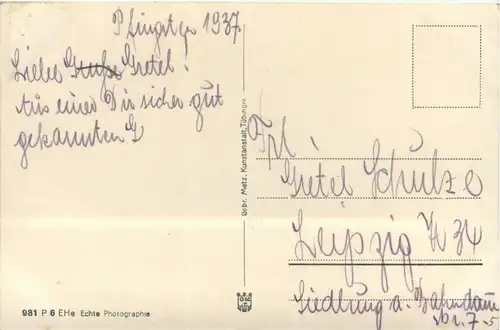 Pfingstg 1937
Liebes Gretel!
Aus einer Dir sicher gut
gekannten G
Frl.
Gretel Schulze
Leipzig N 34
Siedlung a. Bahndamm
Nr. 7
Gebr. Metz, Kunstanstalt, Tübingen
981 P 6 EHe Echte Photographie